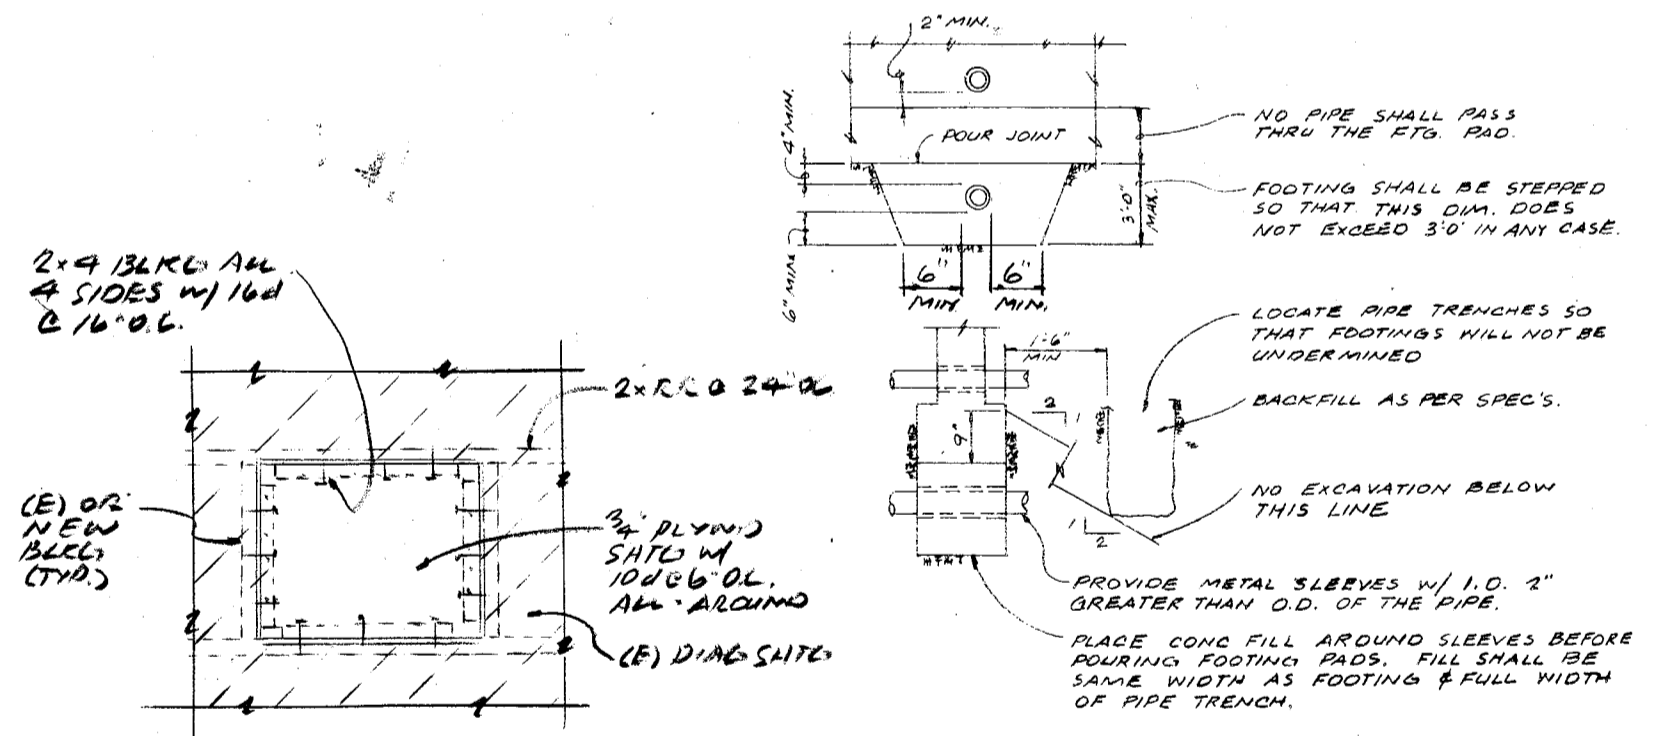 2×4 BLKG ALL
4 SIDES w/ 16d
@ 16" O.C.
2×RR @ 24" OC
(E) OR
NEW
BLKG
(TYP.)
3/4" PLYWD
SHTG w/
10d @ 6" O.C.
ALL-AROUND
(E) DIAG SHTG
2" MIN.
4" MIN.
POUR JOINT
6" MIN.
6"
MIN.
6"
MIN.
3'-0"
MAX.
NO PIPE SHALL PASS
THRU THE FTG. PAD.
FOOTING SHALL BE STEPPED
SO THAT THIS DIM. DOES
NOT EXCEED 3'-0" IN ANY CASE.
1'-6"
MIN
2
1
9"
1
2
LOCATE PIPE TRENCHES SO
THAT FOOTINGS WILL NOT BE
UNDERMINED
BACKFILL AS PER SPEC'S.
NO EXCAVATION BELOW
THIS LINE
PROVIDE METAL SLEEVES W/ I.D. 2"
GREATER THAN O.D. OF THE PIPE.
PLACE CONC FILL AROUND SLEEVES BEFORE
POURING FOOTING PADS. FILL SHALL BE
SAME WIDTH AS FOOTING & FULL WIDTH
OF PIPE TRENCH.